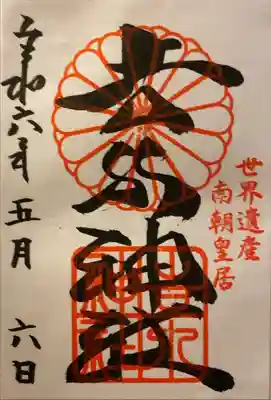 世界遺産
南朝皇居
吉水神社
令和六年五月六日